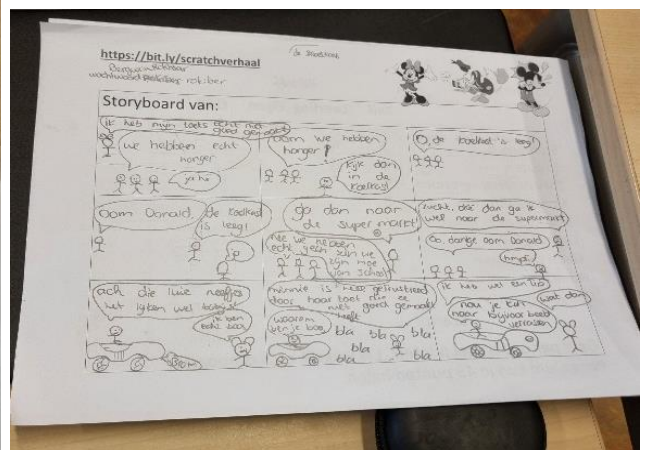 https://bit.ly/scratchverhaal
rokiber
Storyboard van:
ik heb mijn toets echt niet
goed gemaakt
we hebben echt
honger
ja hè
oom we hebben
honger!
Kijk dan
in de
koelkast
O, de koelkast is leeg!
Oom Donald,
de koelkast
is leeg!
ga dan naar
de supermarkt!
nee we hebben
echt geen zin we
zijn moe
van school
zucht, oké dan ga ik
wel naar de supermarkt
Oo, dankje oom Donald
hmpf!
ach die luie neefjes
het lijken wel
ik ben
echt boos
minnie is heel gefrustreerd
door haar toets die ze
niet goed gemaakt
heeft
waarom
ben je boos
bla bla bla
bla
bla bla
ik heb wel een tip
wat dan
nou je kun
naar bijvoorbeeld